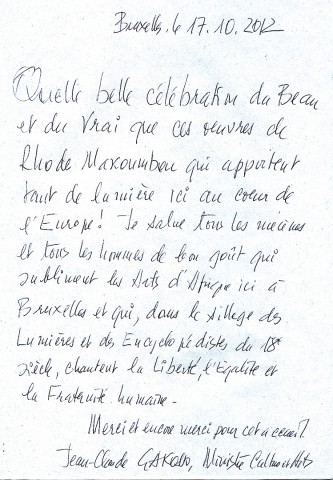 Bruxelles, le 17.10.2012
Quelle belle célébration du Beau
et du Vrai que ces oeuvres de
Rhode Makoumbou qui apportent
tant de lumière ici au coeur de
l'Europe! Je salue tous les mécènes
et tous les hommes de bon goût qui
subliment les Arts d'Afrique ici à
Bruxelles et qui, dans le sillage des
Lumières et des Encyclopédistes du 18e
siècle, chantent la Liberté, l'Egalité et
la Fraternité humaine.
Merci et encore merci pour cet accueil.
Jean-Claude GAKOSSO, Ministre Culture et Arts